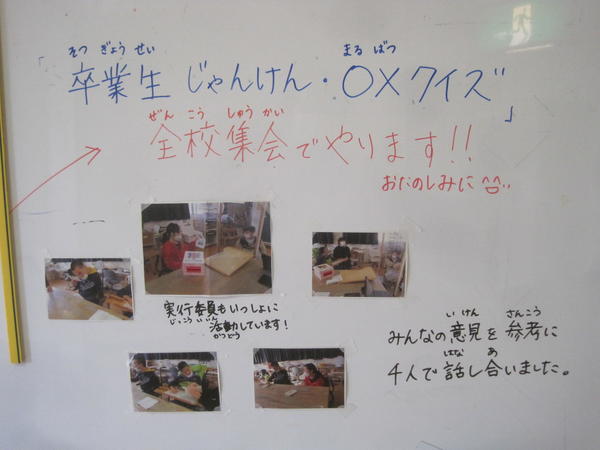 「
そつ ぎょう せい まる ばつ
卒業生じゃんけん・○×クイズ
」
ぜん こう しゅう かい
全校集会でやります!!
おたのしみに ^^
実行委員もいっしょに
じっこう いいん
活動しています!
かつどう
い けん さんこう
みんなの意見を参考に
はな あ
4人で話し合いました。